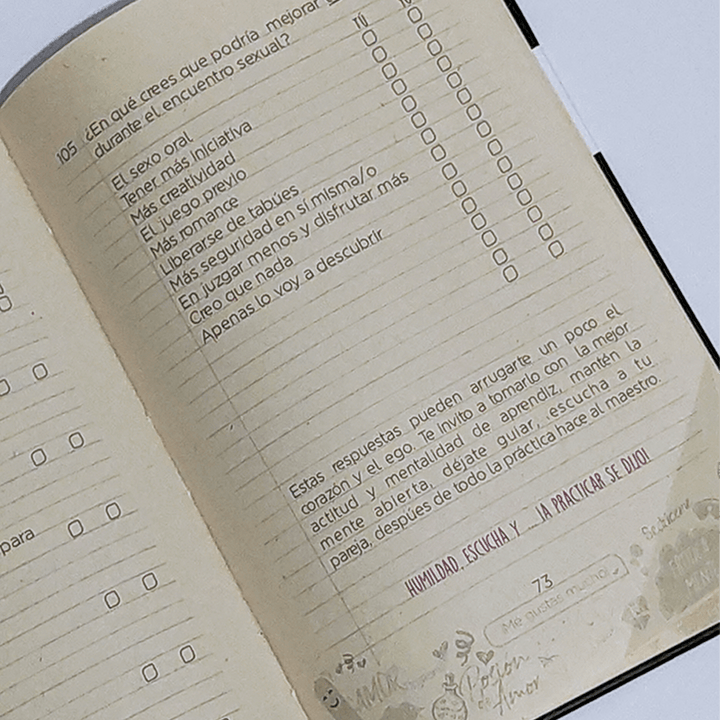 105 ¿En qué crees que podría mejorar
durante el encuentro sexual?
Tú
El sexo oral
Tener más iniciativa
Más creatividad
El juego previo
Más romance
Liberarse de tabúes
Más seguridad en sí misma/o
En juzgar menos y disfrutar más
Creo que nada
Apenas lo voy a descubrir
para
Estas respuestas pueden arrugarte un poco el
corazón y el ego. Te invito a tomarlo con la mejor
actitud y mentalidad de aprendiz, mantén la
mente abierta, déjate guiar, escucha a tu
pareja, despúes de todo la práctica hace al maestro.
HUMILDAD, ESCUCHA Y ... ¡A PRACTICAR SE DIJO!
73
¡Me gustas mucho!
AMOR
Poción
de Amor